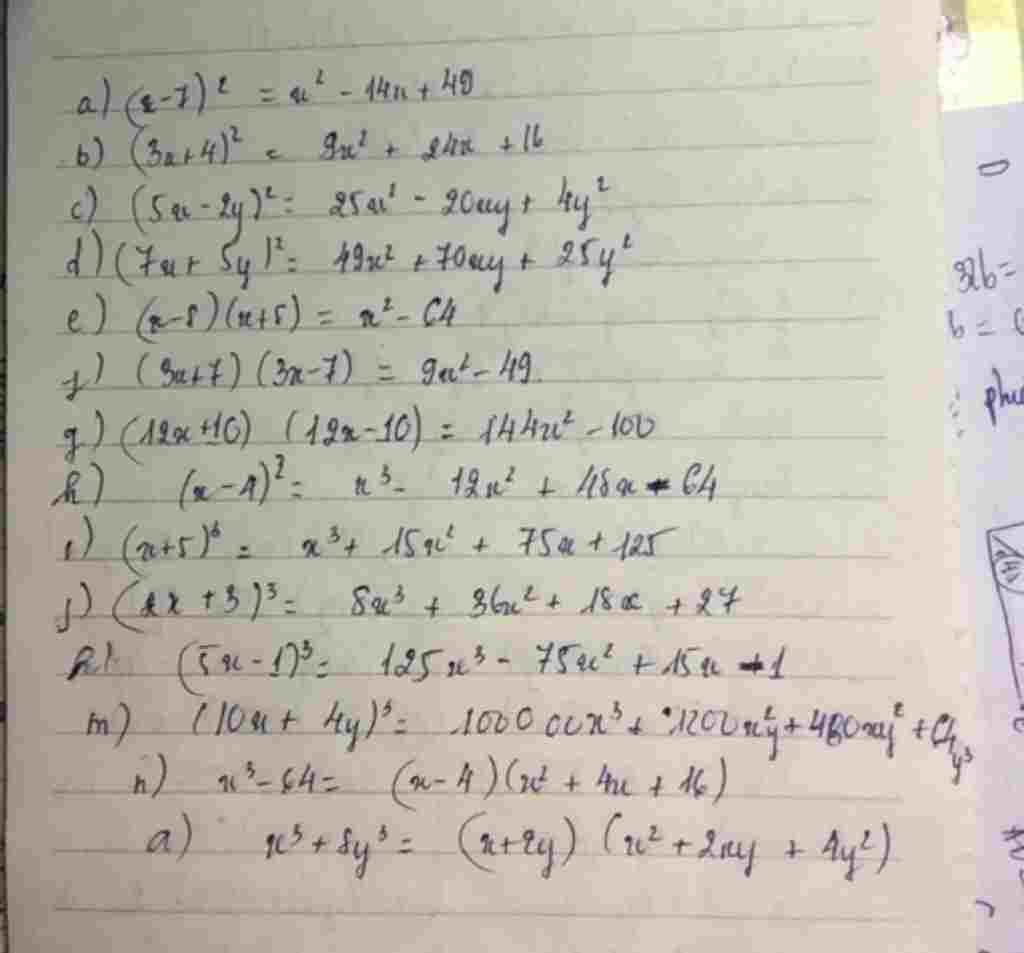 a) (x-7)² = x² - 14x + 49
b) (3x+4)² = 9x² + 24x + 16
c) (5x - 2y)² = 25x² - 20xy + 4y²
d) (7x + 5y)² = 49x² + 70xy + 25y²
e) (x-8)(x+8) = x² - 64
f) (3x+7) (3x-7) = 9x² - 49.
g) (12x+10) (12x-10) = 144x² - 100
h) (x-4)³ = x³ - 12x² + 48x - 64
i) (x+5)³ = x³ + 15x² + 75x + 125
j) (2x +3)³ = 8x³ + 36x² + 18x + 27
k) (5x - 1)³ = 125x³ - 75x² + 15x - 1
m) (10x + 4y)³ = 100000x³ + 1200x²y + 480xy² + 64y³
n) x³ - 64 = (x-4)(x² + 4x + 16)
a) x³ + 8y³ = (x+2y) (x² + 2xy + 4y²)
32b =
b =